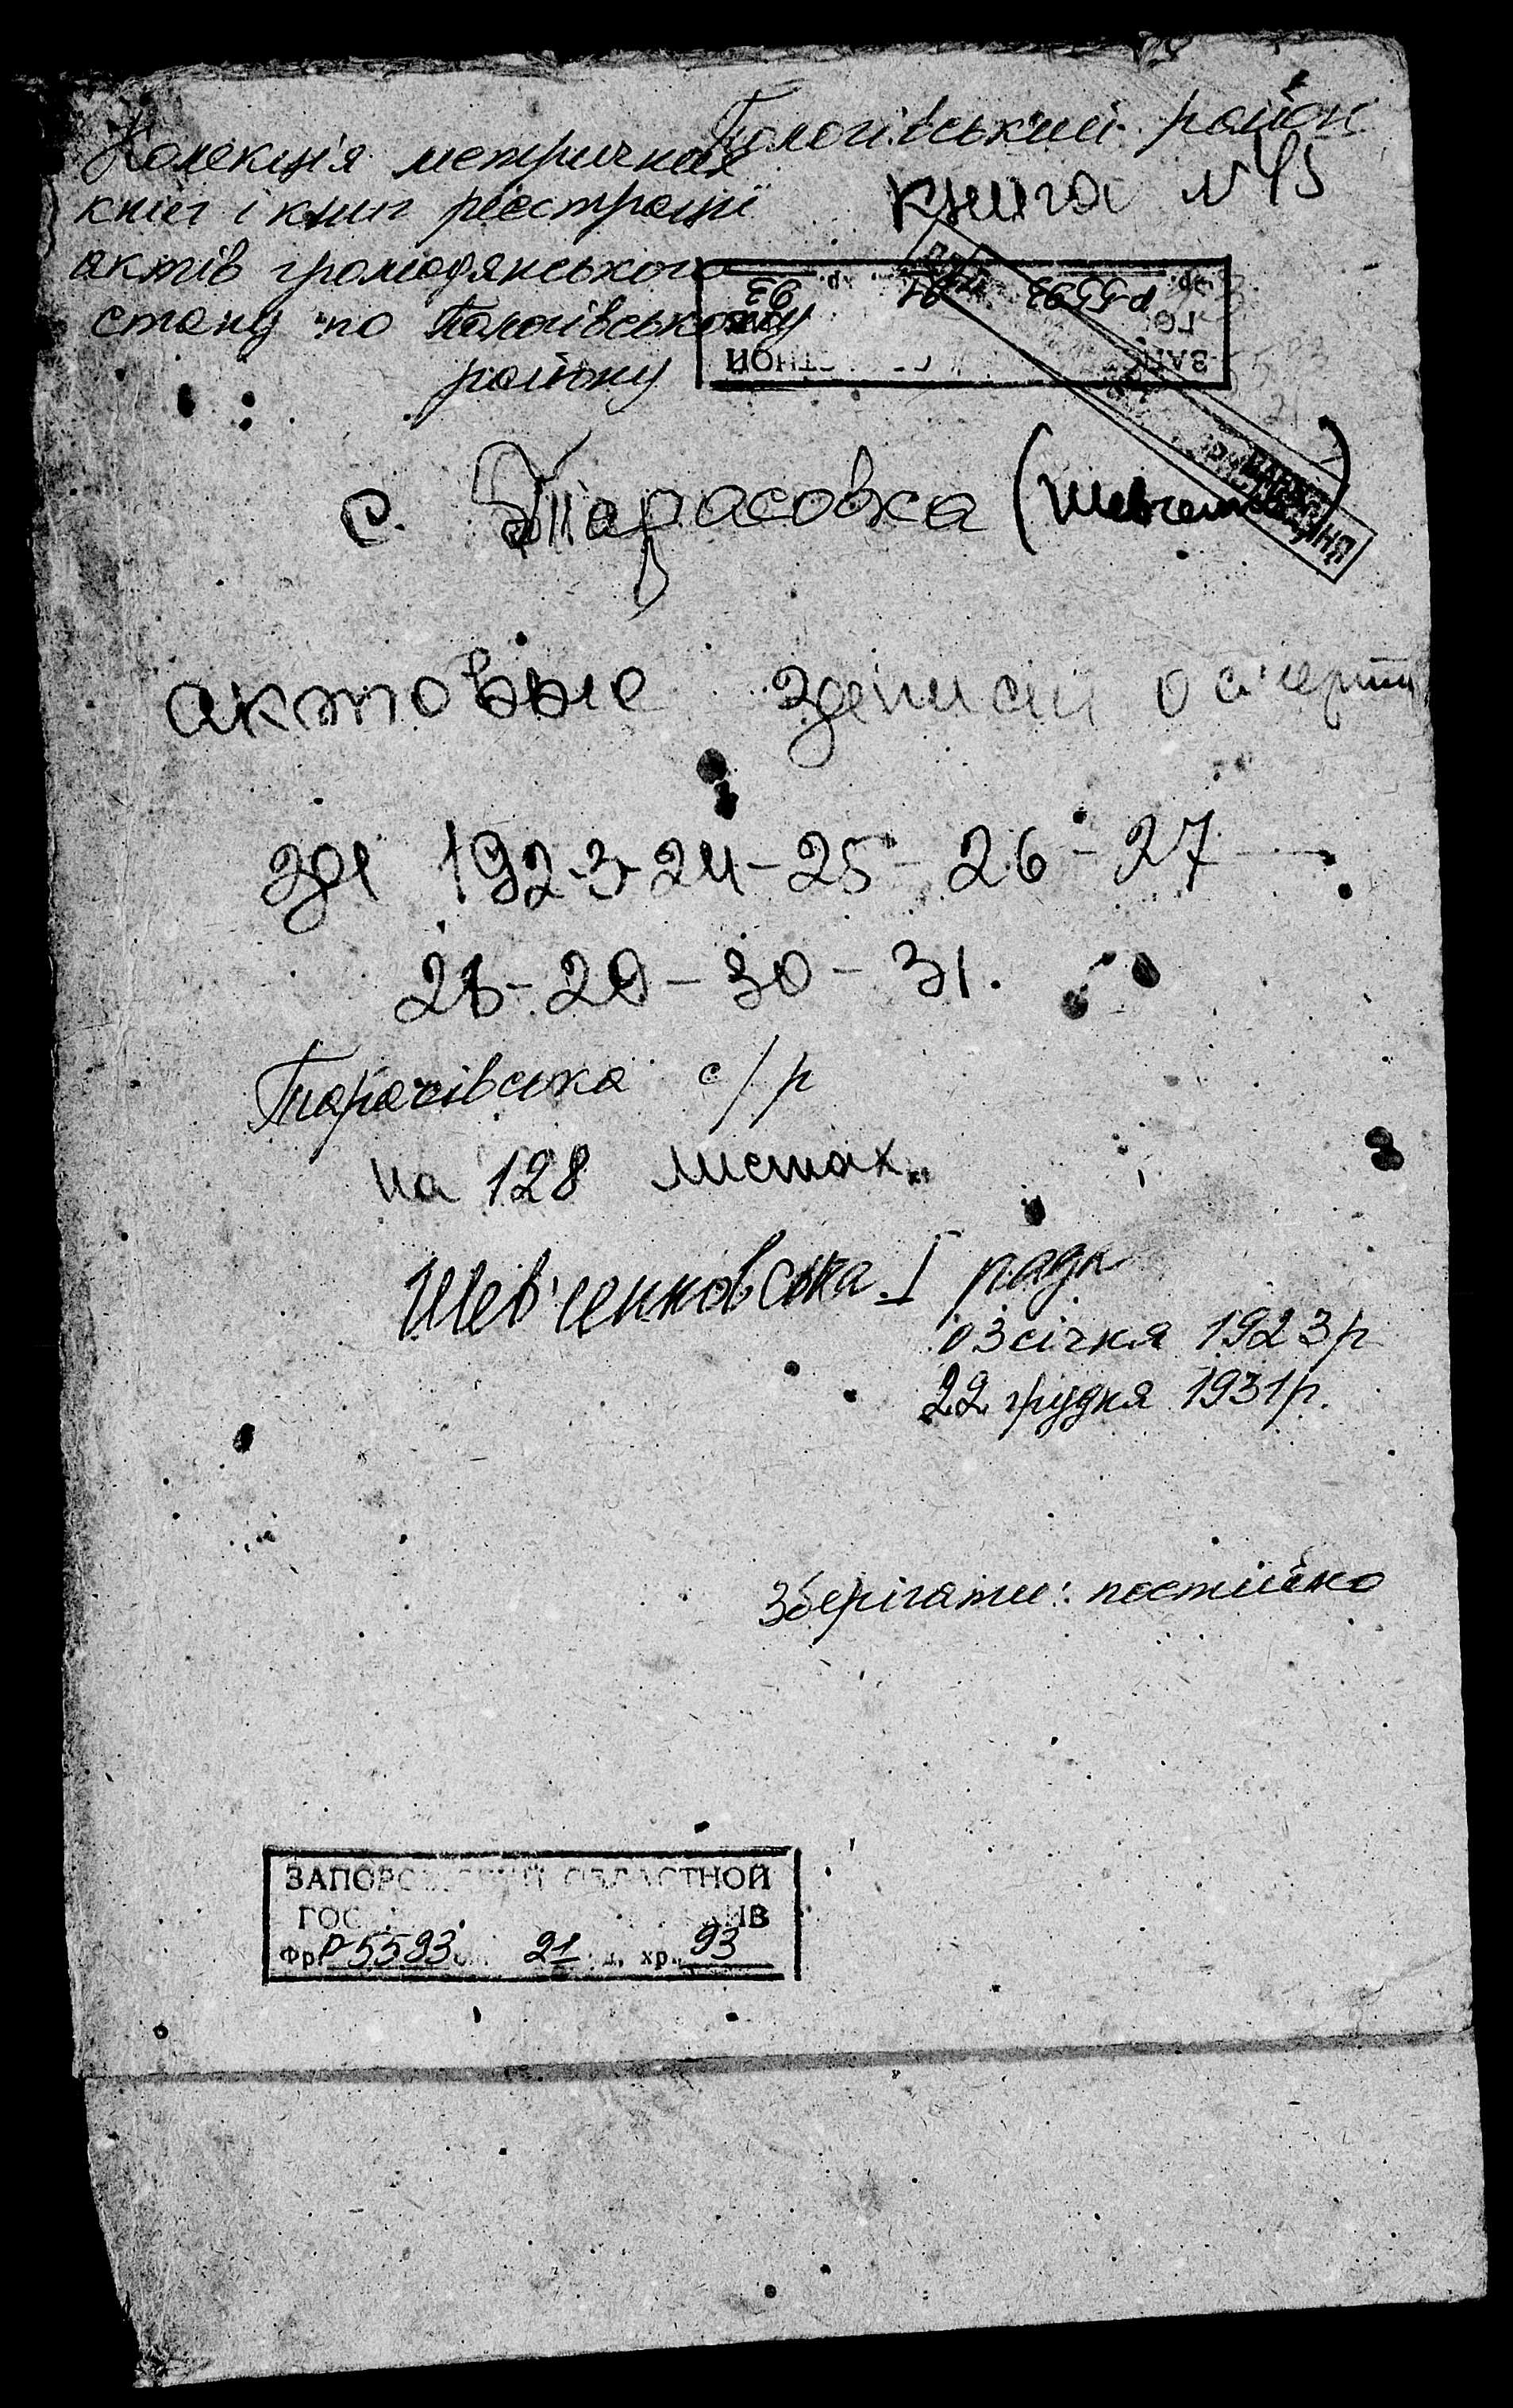 Пологівський район
Колекція метричних
книг і книг реєстрації
актів громадянського
стану по Пологівському
району
книга №45
Р-5593 21 93
с. Тарасовка (
актовые записи о смерти
за 1923-24-25-26-27-
28-29-30-31.
Тарасівська с/р
на 128 листах.
Шевченковська I рада
03 січня 1923р
22 грудня 1931р.
Зберігати: постійно
ЗАПОРОЖСКИЙ ОБЛАСТНОЙ
Фр Р-5593 21 д. хр. 93